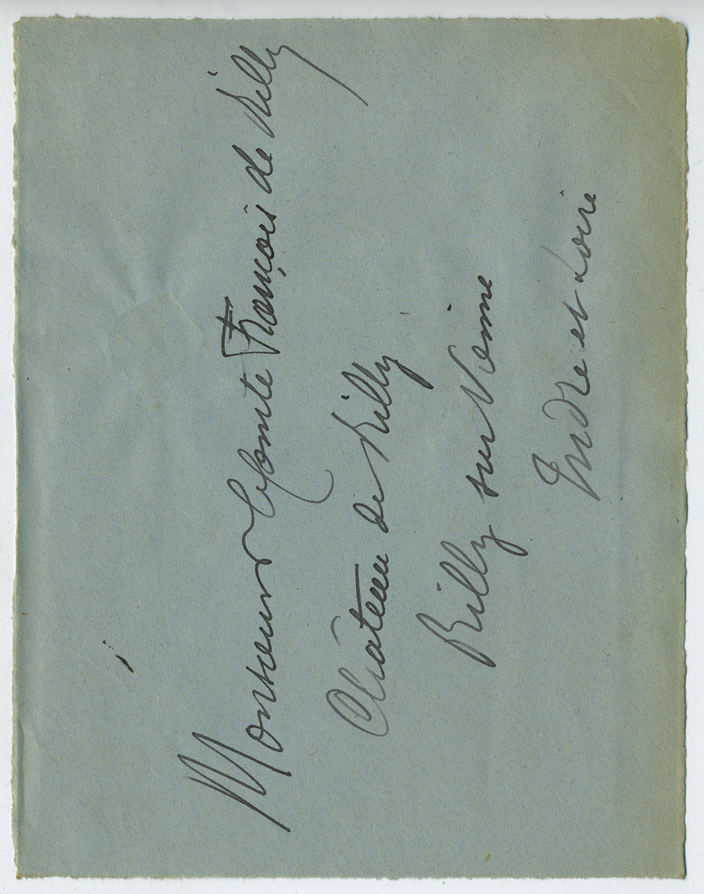 Monsieur le Comte François de Rilly
Château de Rilly
Rilly sur Vienne
Indre et Loire